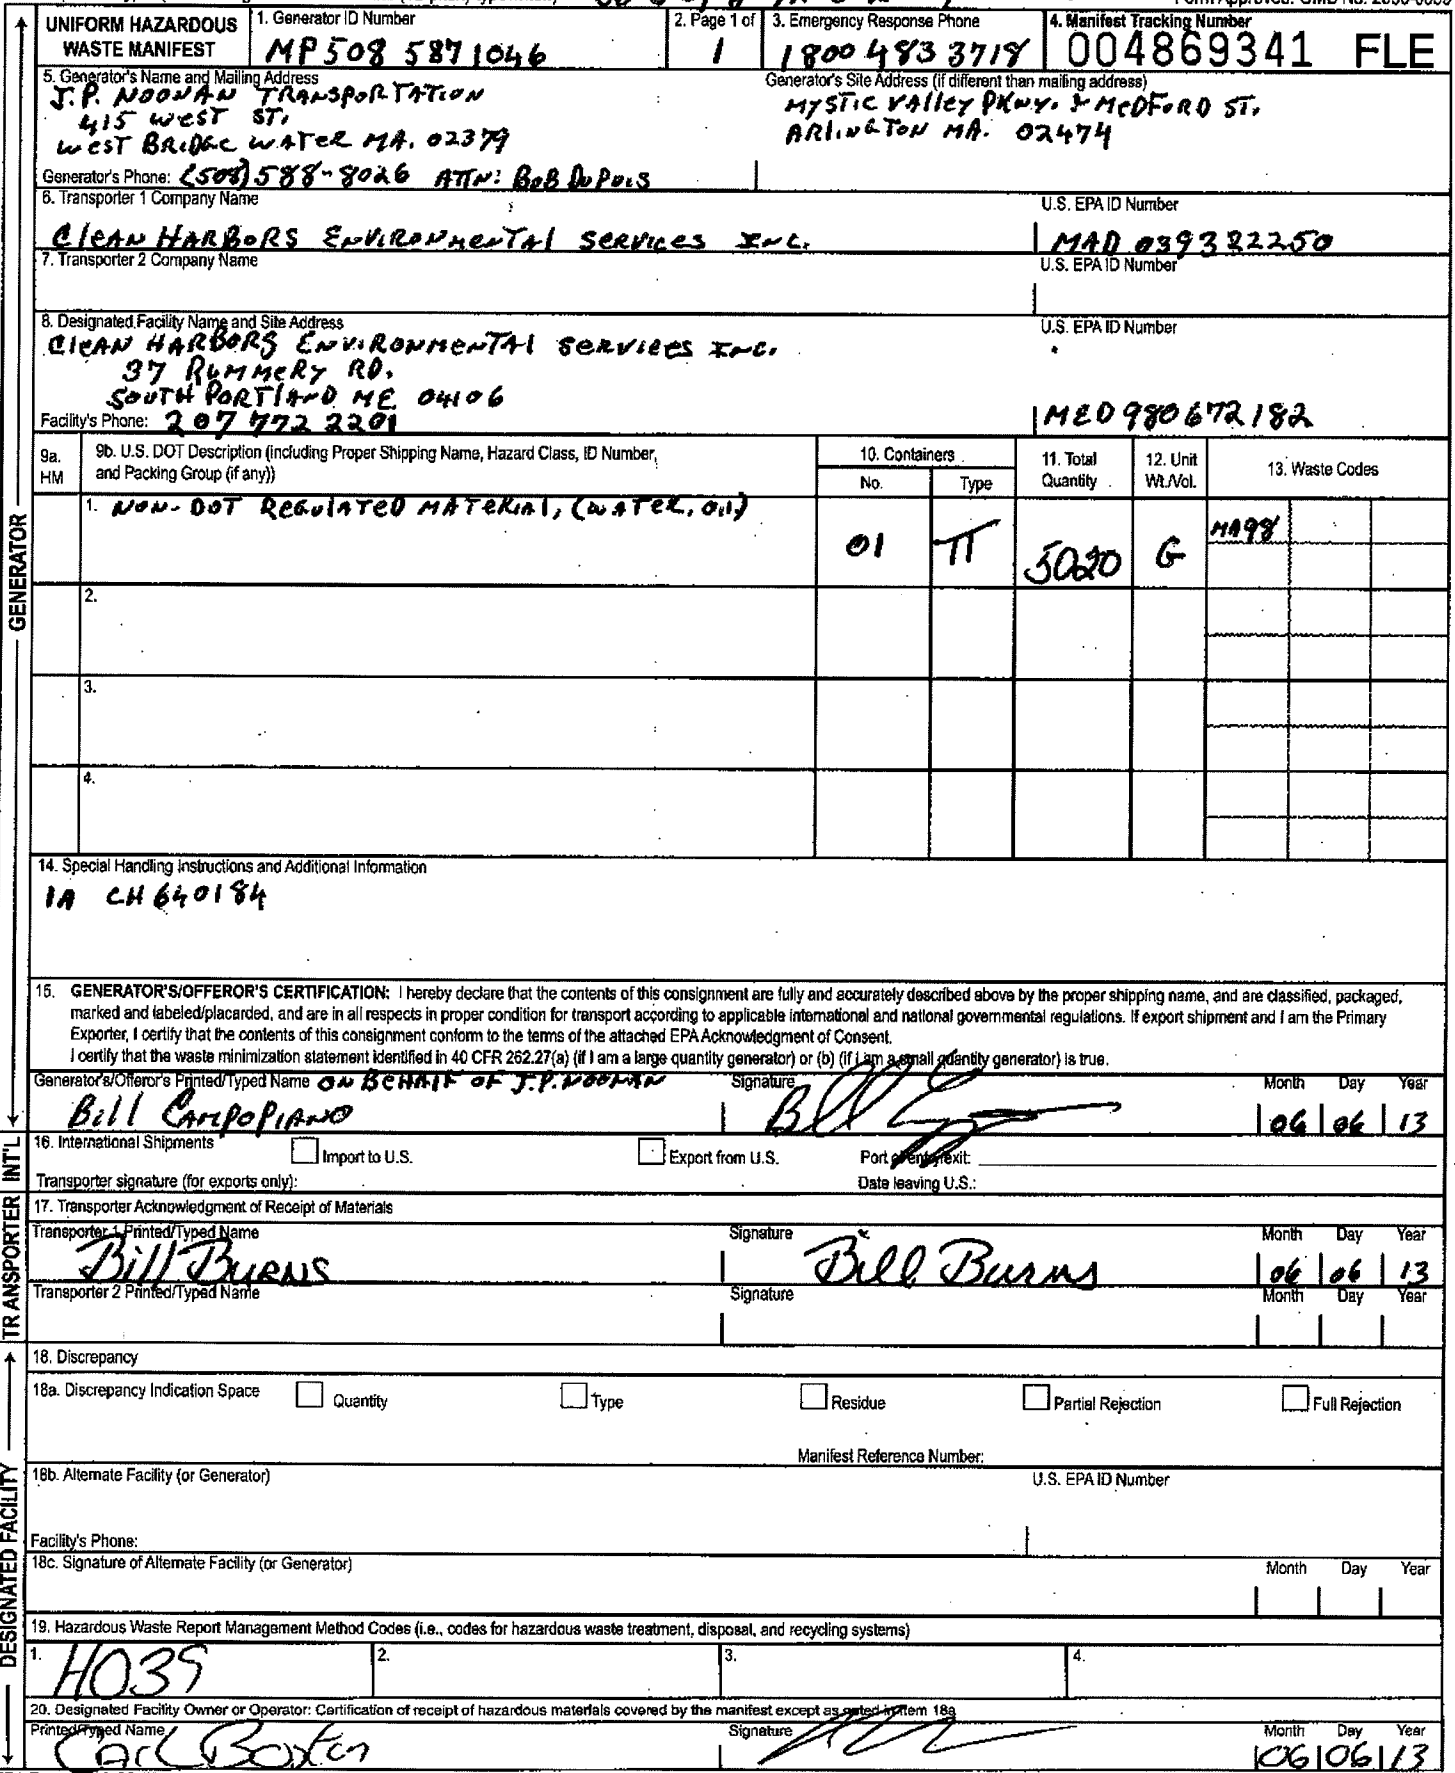 UNIFORM HAZARDOUS WASTE MANIFEST
1. Generator ID Number
MP508 5871046
2. Page 1 of
1
3. Emergency Response Phone
1800 483 3718
4. Manifest Tracking Number
004869341 FLE
5. Generator's Name and Mailing Address
J.P. NOONAN TRANSPORTATION
415 WEST ST.
WEST BRIDGE WATER MA. 02379
Generator's Phone: (508) 588-8026 ATTN: BOB DUPUIS
Generator's Site Address (if different than mailing address)
MYSTIC VAlley PKWY. & MEDFORD ST.
ARLINGTON MA. 02474
6. Transporter 1 Company Name
ClEAN HARBORS ENVIRONMENTAL SERVICES INC.
U.S. EPA ID Number
MAD 039322250
7. Transporter 2 Company Name
U.S. EPA ID Number
8. Designated Facility Name and Site Address
ClEAN HARBORS ENVIRONMENTAl SERVICES INC.
37 RUMMERY RD.
SOUTH PORTlAND ME 04106
Facility's Phone: 207 772 2201
U.S. EPA ID Number
MED980672182
9a. HM
9b. U.S. DOT Description (including Proper Shipping Name, Hazard Class, ID Number, and Packing Group (if any))
10. Containers
No.
Type
11. Total Quantity
12. Unit Wt./Vol.
13. Waste Codes
1. NON-DOT REGULATED MATERIAL, (WATER, OIl)
01
TT
5020
G
MA98
2.
3.
4.
14. Special Handling Instructions and Additional Information
1A CH640184
15. GENERATOR'S/OFFEROR'S CERTIFICATION: I hereby declare that the contents of this consignment are fully and accurately described above by the proper shipping name, and are classified, packaged,
marked and labeled/placarded, and are in all respects in proper condition for transport according to applicable international and national governmental regulations. If export shipment and I am the Primary
Exporter, I certify that the contents of this consignment conform to the terms of the attached EPA Acknowledgment of Consent.
I certify that the waste minimization statement identified in 40 CFR 262.27(a) (if I am a large quantity generator) or (b) (if I am a small quantity generator) is true.
Generator's/Offeror's Printed/Typed Name ON BEHAlF OF J.P. NOONAN
Bill CAMPOPIANO
Signature
Month Day Year
06 06 13
16. International Shipments
Import to U.S.
Export from U.S.
Port of entry/exit:
Transporter signature (for exports only):
Date leaving U.S.:
17. Transporter Acknowledgment of Receipt of Materials
Transporter 1 Printed/Typed Name
Bill BURNS
Signature
Bill Burns
Month Day Year
06 06 13
Transporter 2 Printed/Typed Name
Signature
Month Day Year
18. Discrepancy
18a. Discrepancy Indication Space
Quantity
Type
Residue
Partial Rejection
Full Rejection
Manifest Reference Number:
18b. Alternate Facility (or Generator)
U.S. EPA ID Number
Facility's Phone:
18c. Signature of Alternate Facility (or Generator)
Month Day Year
19. Hazardous Waste Report Management Method Codes (i.e., codes for hazardous waste treatment, disposal, and recycling systems)
1. H039
2.
3.
4.
20. Designated Facility Owner or Operator: Certification of receipt of hazardous materials covered by the manifest except as noted in Item 18a
Printed/Typed Name
Carl Boxter
Signature
Month Day Year
06 06 13
GENERATOR
INT'L
TRANSPORTER
DESIGNATED FACILITY